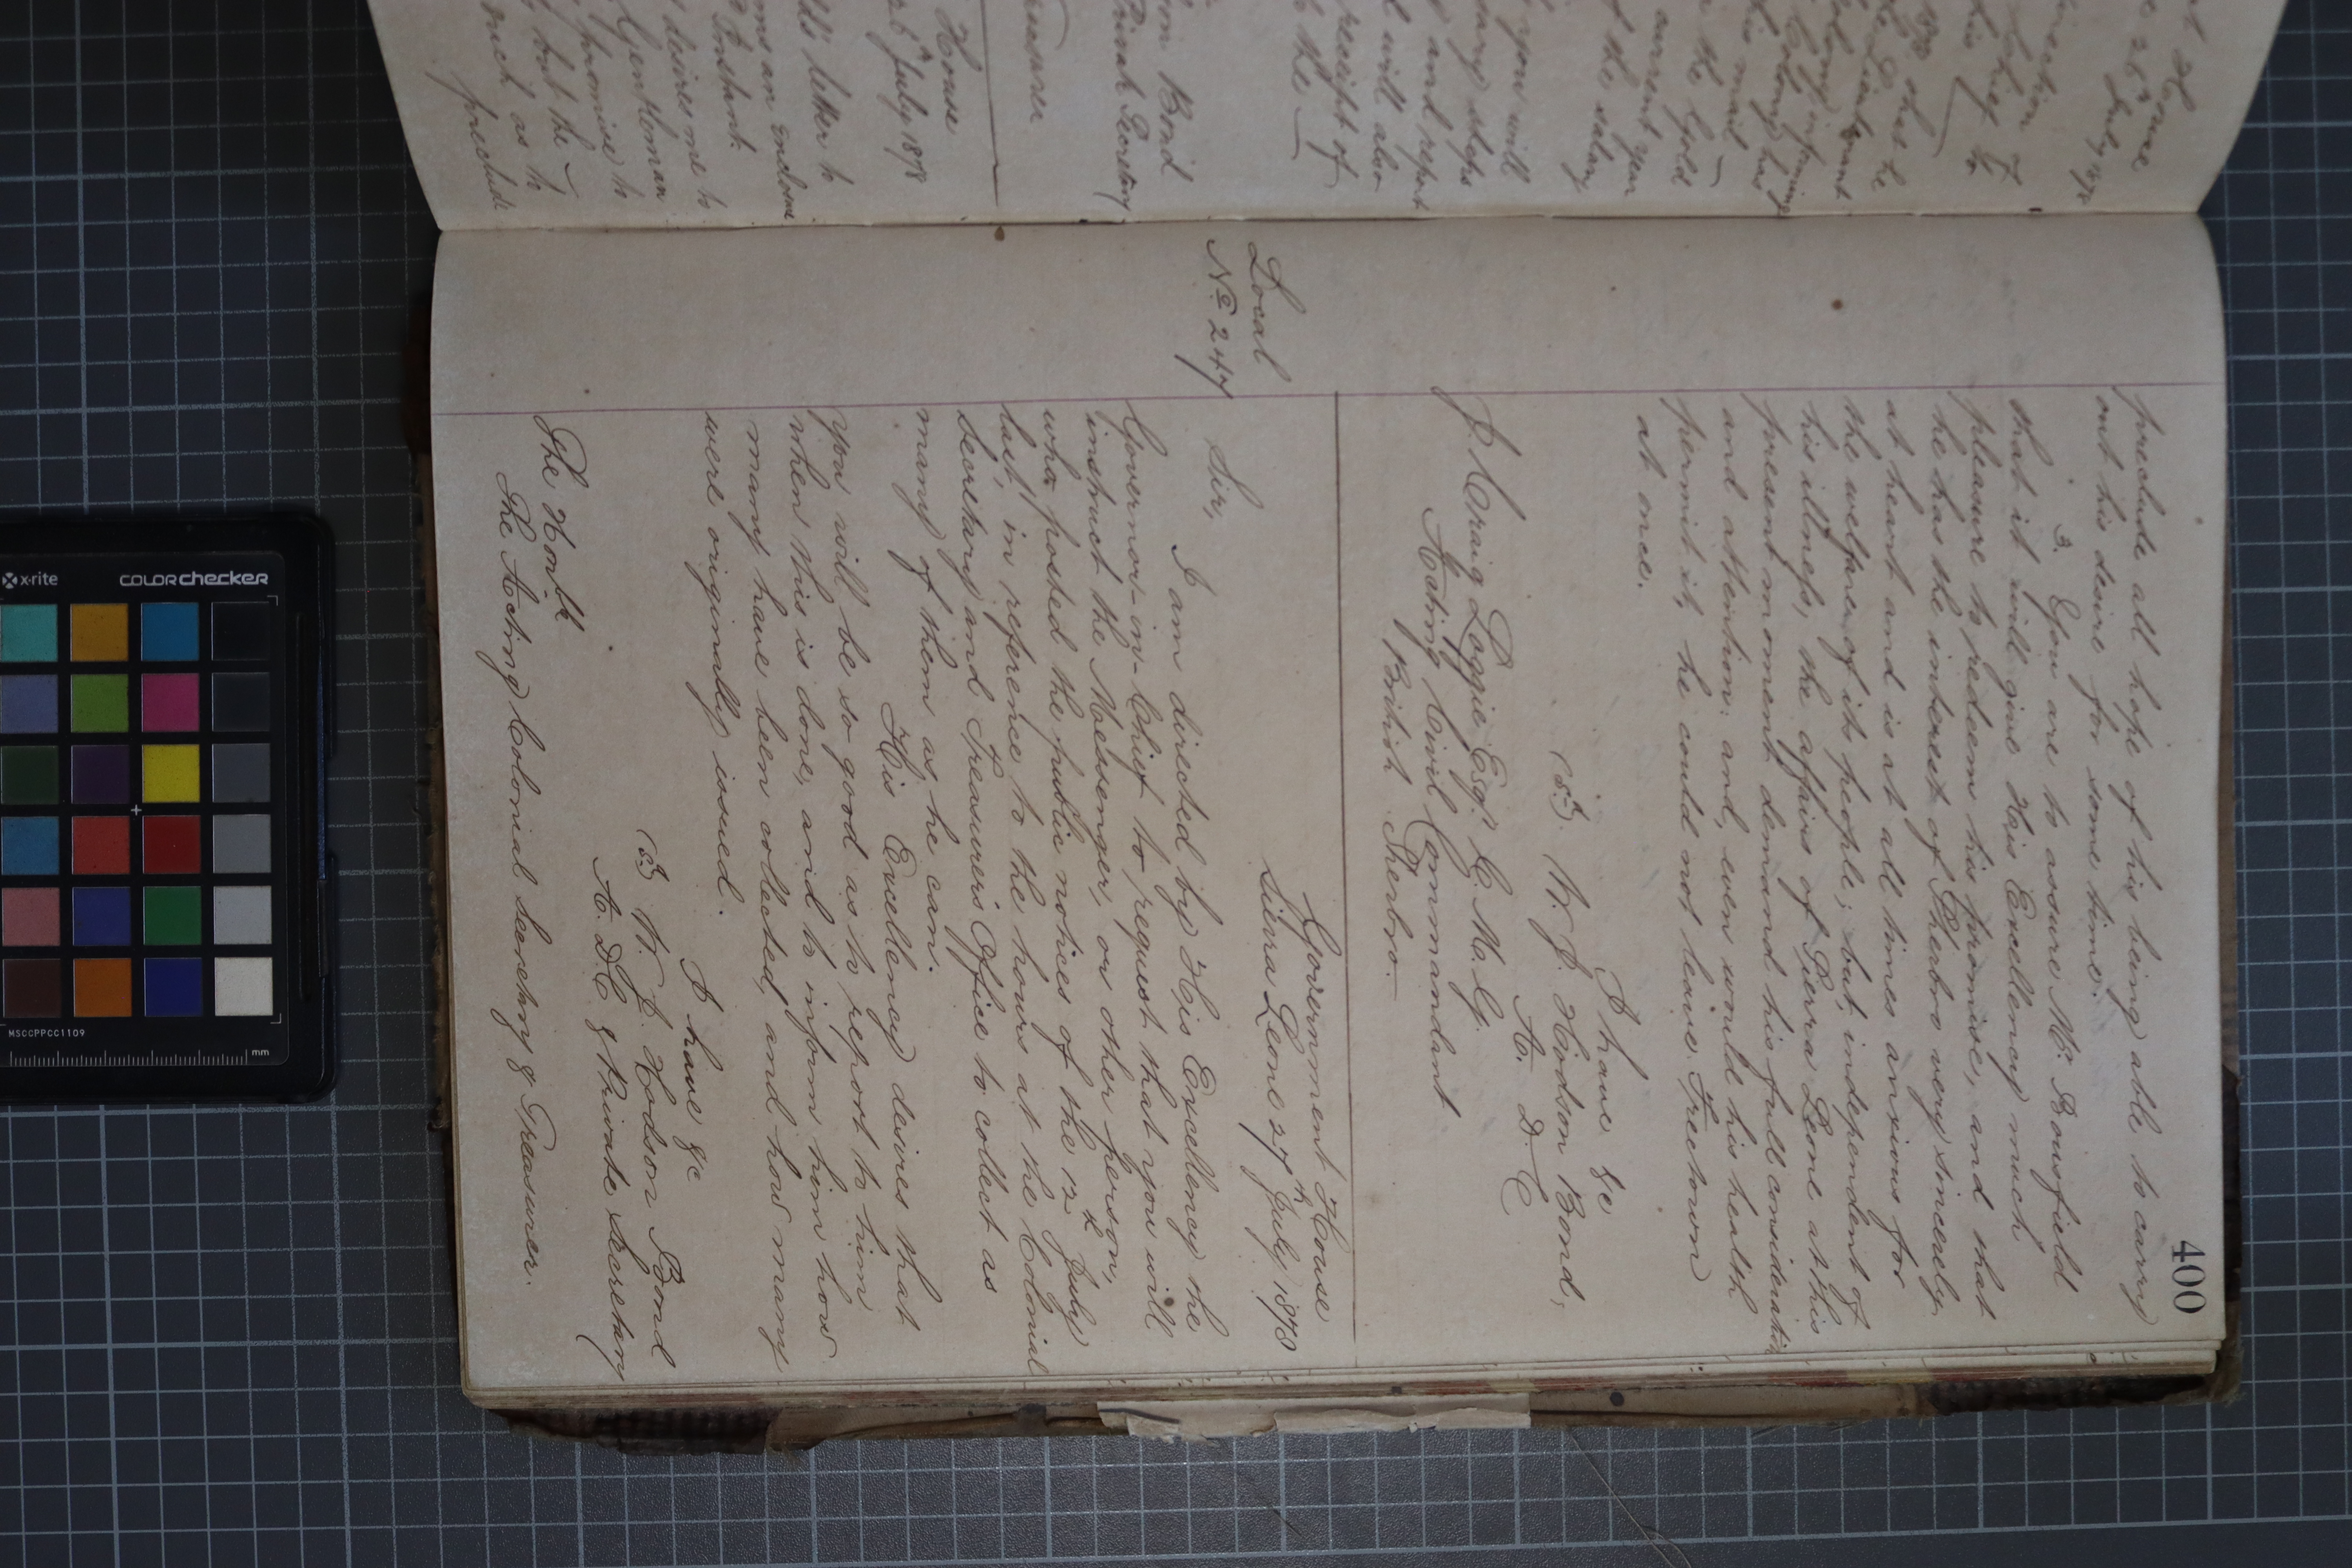 400
preclude all hope of his being able to carry
out his desire for some time.
3. You are to assure Mr. Bousfield
that it will give His Excellency much
pleasure to redeem his promise, and that
he has the interest of Sherbro very sincerely
at heart and is at all times anxious for
the welfare of its people; but, independent of
his illness, the affairs of Sierra Leone at this
present moment demand his full consideration
and attention: and, even would his health
permit it, he could not leave Freetown
at once.
I have &c
(sd) W. J. Hodson Bond,
A. D C
J. Craig Loggie Esqr. C. M. G.
Acting Civil Commandant
British Sherbro.
Local
No 247
Government House
Sierra Leone 27th July 1878
Sir,
I am directed by His Excellency the
Governor-in-Chief to request that you will
instruct the Messenger, or other person,
who posted the public notices of the 12th July
last, in reference to the hours at the Colonial
Secretary and Treasurers Office to collect as
many of them as he can.
His Excellency desires that
you will be so good as to report to him
when this is done, and to inform him how
many have been collected, and how many
were originally issued.
I have &c
(sd) W. J. Hodson Bond
A. DC & Private Secretary
The Honble
The Acting Colonial Secretary & Treasurer.
House
July 1878
on Bond
Private Secretary
House
July 1878
letter to
an enclosure
Constant.
desires me to
Gentleman
promise to
but the
such as to
preclude
you will
steps
and report
will also
receipt of
the
the Gold
current year
the salary
COLORchecker
x-rite
MSCCPPCC1109
mm